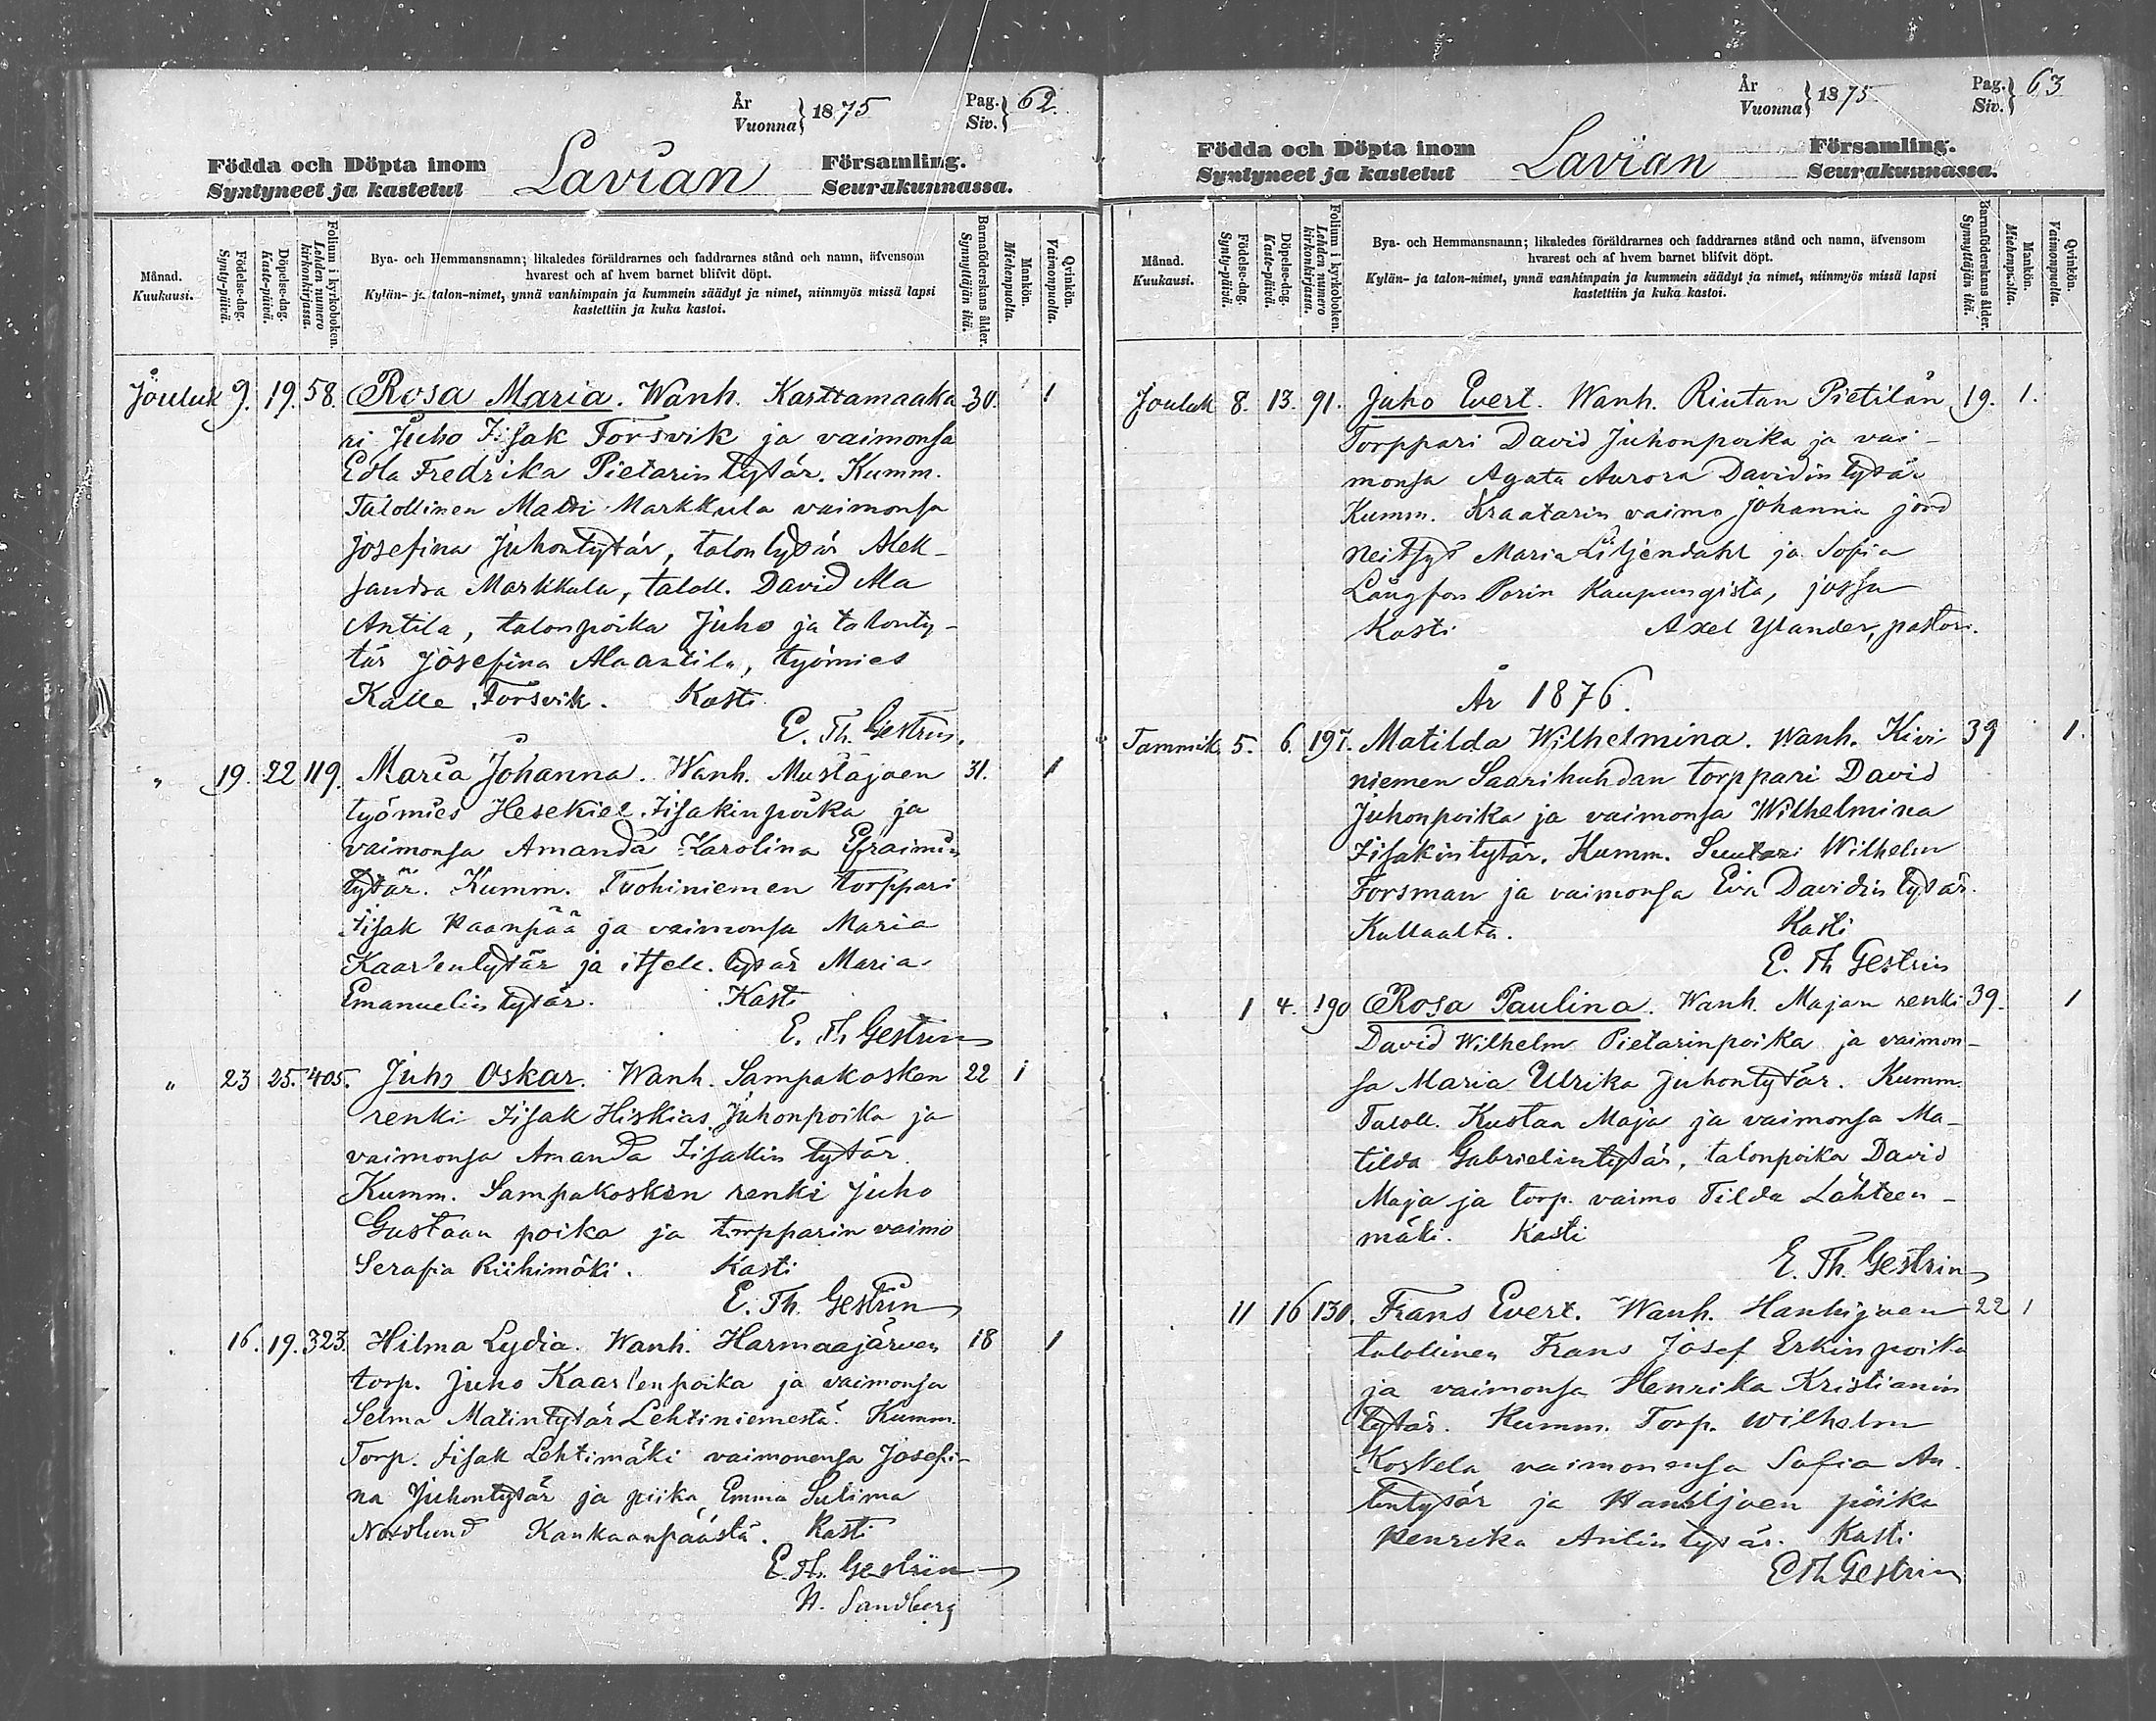 År
Vuonna } 1875
Pag.
Siv. } 62.
Födda och Döpta inom
Syntyneet ja kastetut
Lavian
Församling.
Seurakunnassa.
Månad.
Kuukausi.
Födelse-dag.
Synty-päivä.
Döpelse-dag.
Kaste-päivä.
Folium i kyrkoboken.
Lehden numero
kirkonkirjassa.
Bya- och Hemmansnamn; likaledes föräldrarnes och faddrarnes stånd och namn, äfvensom
hvarest och af hvem barnet blifvit döpt.
Kylän- ja talon-nimet, ynnä vanhimpain ja kummein säädyt ja nimet, niinmyös missä lapsi
kastettiin ja kuka kastoi.
Barnaföderskans ålder.
Synnyttäjän ikä.
Mankön.
Miehenpuolta.
Qvinkön.
Vaimonpuolta.
Jouluk 9. 19. 58. Rosa Maria. Wanh. Karttamaaka 30. 1
ri Juho Iisak Forsvik ja vaimonsa
Edla Fredrika Pietarin tytär. Kumm.
Talollinen Matti Markkula vaimonsa
Josefina Juhontytär, talontytär Alek-
sandra Markkula, taloll. David Ala
Antila, talonpoika Juho ja talonty-
tär Josefina Alaantila, työmies
Kalle Forsvik. Kasti
E. Th. Gestrin.
„ 19. 22 119. Maria Johanna. Wanh. Mustajoen 31. 1
työmies Hesekiel Iisakinpoika ja
vaimonsa Amanda Karolina Efraimin
tytär. Kumm. Tuohiniemen torppari
Iisak Kaanpää ja vaimonsa Maria
Kaarlentytär ja itsell. tytär Maria
Emanuelin tytär. Kasti
E. Th Gestrin
„ 23 25. 405. Juho Oskar. Wanh. Sampakosken 22 1
renki Iisak Hiskias Juhonpoika ja
vaimonsa Amanda Iisakin tytär.
Kumm. Sampakosken renki Juho
Gustaan poika ja torpparin vaimo
Serafia Riihimäki. Kasti
E. Th. Gestrin
16. 19. 323. Hilma Lydia. Wanh. Harmaajärven 18 1
torp. Juho Kaarlenpoika ja vaimonsa
Selma Matintytär Lehtiniemestä. Kumm.
Torp. Iisak Lehtimäki vaimonensa Josefi-
na Juhontytär ja piika Emma Sulima
Nordlund Kankaanpäästä. Kasti
E. Th. Gestrin
Sandberg
År
Vuonna } 1875
Pag.
Siv. } 63
Födda och Döpta inom
Syntyneet ja kastetut
Lavian
Församling.
Seurakunnassa.
Månad.
Kuukausi.
Födelse-dag.
Synty-päivä.
Döpelse-dag.
Kaste-päivä.
Folium i kyrkoboken.
Lehden numero
kirkonkirjassa.
Bya- och Hemmansnamn; likaledes föräldrarnes och faddrarnes stånd och namn, äfvensom
hvarest och af hvem barnet blifvit döpt.
Kylän- ja talon-nimet, ynnä vanhimpain ja kummein säädyt ja nimet, niinmyös missä lapsi
kastettiin ja kuka kastoi.
Barnaföderskans ålder.
Synnyttäjän ikä.
Mankön.
Miehenpuolta.
Qvinkön.
Vaimonpuolta.
Jouluk 8. 13. 91. Juho Evert. Wanh. Riutan Pietilän 19. 1.
Torppari David Juhonpoika ja vai-
monsa Agata Aurora Davidin tytär
Kumm. Kraatarin vaimo Johanna
Neitsyt Maria Liljendahl ja Sofia
Långfors Porin Kaupungista, jossa
Kasti Axel Ylander, pastori.
År 1876.
Tammik 5. 6. 191. Matilda Wilhelmina. Wanh. Kivi 39 1.
niemen Saarihuhdan torppari David
Juhonpoika ja vaimonsa Wilhelmina
Iisakintytär. Kumm. Suutari Wilhelm
Forsman ja vaimonsa Eva Davidin tytär
Kullaalta. Kasti
E. Th Gestrin
1 4. 190 Rosa Paulina. Wanh. Majan renki 39. 1
David Wilhelm Pietarinpoika ja vaimon-
sa Maria Ulrika Juhontytär. Kumm.
Taloll. Kustaa Maja ja vaimonsa Ma-
tilda Gabrielintytär, talonpoika David
Maja ja torp. vaimo Tilda Lähteen-
mäki. Kasti
E. Th. Gestrin
11 16 130. Frans Evert. Wanh. Hanhijoen 22 1
talollinen Frans Josef Erkinpoika
ja vaimonsa Henrika Kristianin
tytär. Kumm. Torp. Wilhelm
Koskela vaimonensa Sofia An
tintytär ja Hanhijoen piika
Henrika Antin tytär. Kasti
E Th Gestrin